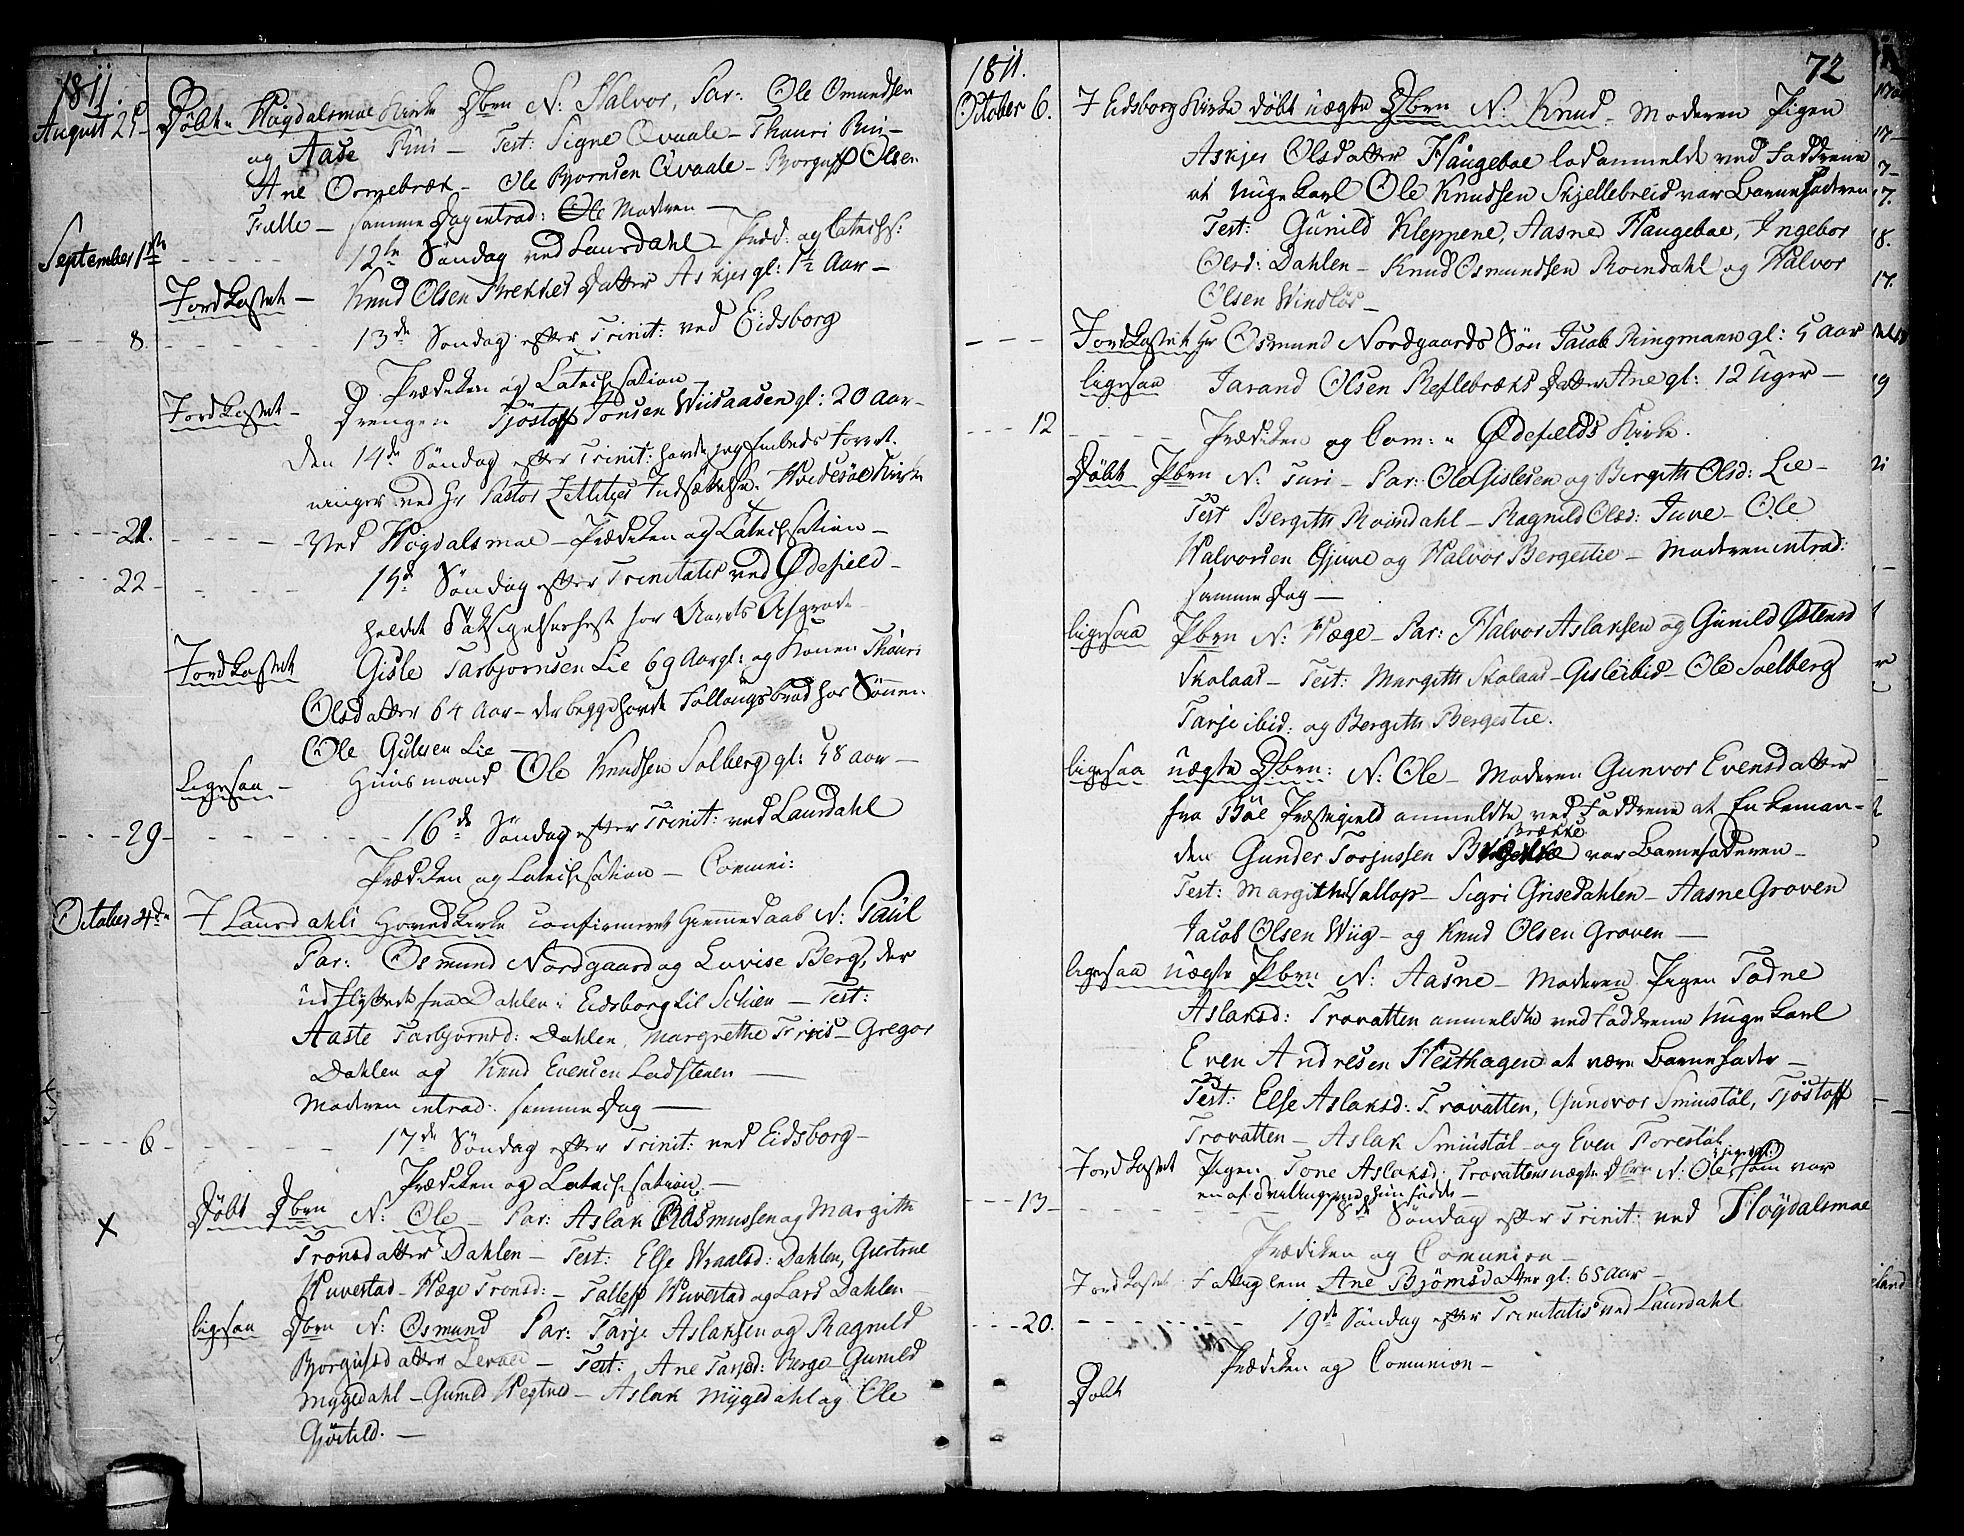 1811.
August 25 Döbt i Høgdalsmoe Kirke Dbrn N: Halvor, Par: Ole Omundsen
og Aase Rui — Test: Signe Qvaale — Thauri Rui —
Ane Ormebræk — Ole Bjornsen Qvaale — Borguff Olsen
Fælle — samme Dag introd: Ole Moderen —
September 1ste — 12te Søndag ved Laurdahl — Præd: og Catechis:
Jordkastet — Knud Olsen Brekkes Datter Askjer gl: 1½ Aar —
8. 13de Søndag efter Trinit: ved Eidsborg
Prædiken og Catechisation
Jordkastet — Drengen Tjöstoff Jonsen Wiisaasen gl: 20 Aar —
Den 14de Søndag efter Trinit: havde jeg Embeds Forret-
ninger ved Hr Pastor Zetlitzes Indsættelse. Hvidesöe Kirke
21. Ved Høgdalsmoe — Prædiken og Catechisation —
22 15de Søndag efter Trinitatis ved Ødefield —
holdet Taksigelsesfest for Aarets Afgrøde
Jordkastet Gisle Tarbjornsen Lie 69 Aar gl: og Konen Thauri
Olsdatter 64 Aar — der begge havde Follougsbrød hos Sönnen
Ole Gislesen Lie —
Ligesaa — Huusmand Ole Knudsen Solberg gl: 58 Aar —
29 — 16de Søndag efter Trinit: ved Laurdahl
Prædiken og Catechisation — Comuni:
October 4de I Laurdahls Hovedkirke confirmeret Hiemmedaab N: Paul
Par: Osmund Nordgaard og Lovise Berg, der
udflyttede fra Dahlen i Eidsborg til Schien — Test:
Aaste Tarbjornsd: Dahlen, Margrethe Friis — Gregor
Dahlen og Knud Evensen Ladstenen —
Moderen introd: samme Dag —
6 — 17de Søndag efter Trinit: ved Eidsborg —
Prædiken og Catechisation —
Döbt Dbrn N: Ole — Par: Aslak Rasmussen og Margith
Tronsdatter Dahlen — Test: Else Wraalsd: Dahlen, Giertrue
Huvestad — Hæge Tronsd: — Talleff Huvestad og Lars Dahlen —
ligesaa Dbrn N: Osmund Par: Tarje Aslaksen og Ragnild
Borgufsdatter Lervei — Test: Ane Tarjsd: Berge — Gunild
Mygedahl — Gunild Hegtved — Aslak Mygedahl og Ole
Gjøstild. —
1811.
72
October 6. I Eidsborg Kirke döbt uægte Dbrn N: Knud — Moderen Pigen
Askjer Olsdatter Haugeboe lod anmelde ved Faddrene
at Unge Karl Ole Knudsen Skjellebreid var Barnefaderen
Test: Gunild Kleppene, Aasne Haugeboe, Ingebor
Olsd: Dahlen — Knud Osmundsen Roindahl og Halvor
Olsen Windlös —
Jordkastet Hr Osmund Nordgaards Sön Jacob Ringmann gl: 5 Aar
ligesaa Jarand Olsen Reflebræks Datter Ane gl: 12 Uger —
12 Prædiken og Com: i Ødefields Kirke.
Döbt Pbrn N: Turi — Par: Ole Gislesen og Bergith Olsd: Lie —
Test Bergith Roindahl — Ragnild Olsd: Juve — Ole
Halvorsen Gjuve og Halvor Bergestie — Moderen introd:
samme Dag —
ligesaa Pbrn N: Hæge — Par: Halvor Aslaksen og Gunild Østensd
Skolaas — Test: Margith Skolaas — Gisle ibid — Ole Soelberg
Tarje ibid: og Bergith Bergestie.
ligesaa uægte Dbrn: N: Ole — Moderen Gunvor Evensdatter
fra Böe Præstegield anmeldte ved Faddrene at Enkeman-
den Gunder Torjussen Brække var Barnefaderen —
Test: Margith Sallop — Sigri Grisedahlen — Aasne Groven
Jacob Olsen Wiig — og Knud Olsen Groven —
ligesaa uægte Pbrn N: Aasne — Moderen Pigen Todne
Aslaksd: Trovatten anmeldte ved Faddrene Unge Karl
Even Andresen Hesthagen at være Barnefader —
Test: Else Aslaksd: Trovatten, Gundvor Smiustöl, Tjöstoff
Trovatten — Aslak Smiustöl — og Even Forestöl
Jordkastet Pigen Tone Aslaksd: Trovattens uægte Dbrn N: Ole, som var
en af Tvillingerne hun födde —
13 — 18de Søndag efter Trinit: ved Høydalsmoe
Prædiken og Comunion —
Jordkastet Fattiglem Ane Bjömsdatter gl: 65 Aar —
20. 19de Søndag efter Trinitatis ved Laurdahl
Prædiken og Comunion —
Döbt